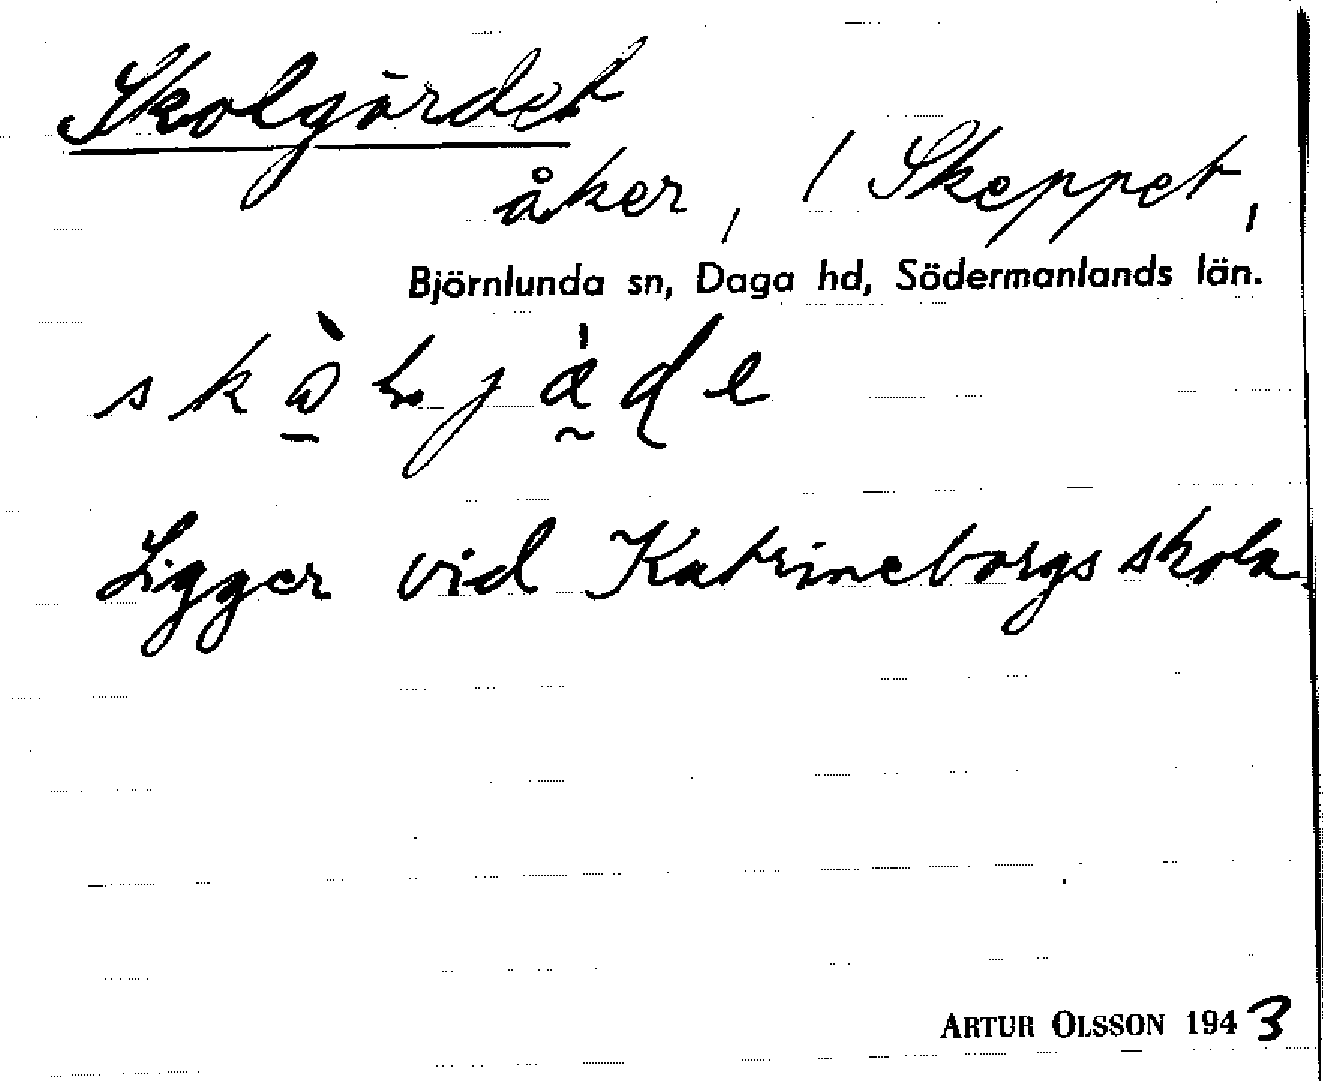 Skolgärdet
åker, / Skeppet,
Björnlunda sn, Daga hd, Södermanlands län.
Ligger vid Katrineborgs skola.
ARTUR OLSSON 1943